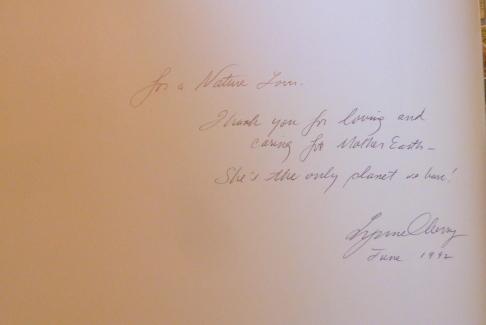 for a Nature Lover.
Thank you for loving and
caring for Mother Earth —
She's the only planet we have!
Lynne Cherry
June 1992